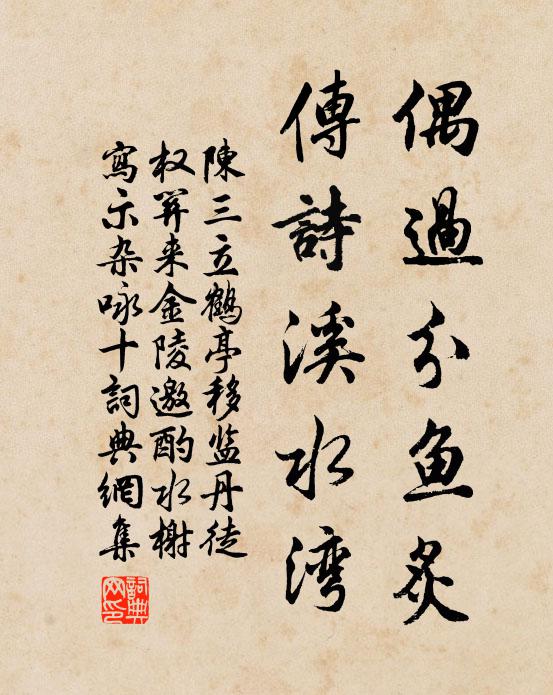 偶過分魚炙
傳詩溪水湾
陳三立鶴亭移监丹徒
权筭来金陵邀酌水榭
寫示杂咏十詞典網集
詞典网印